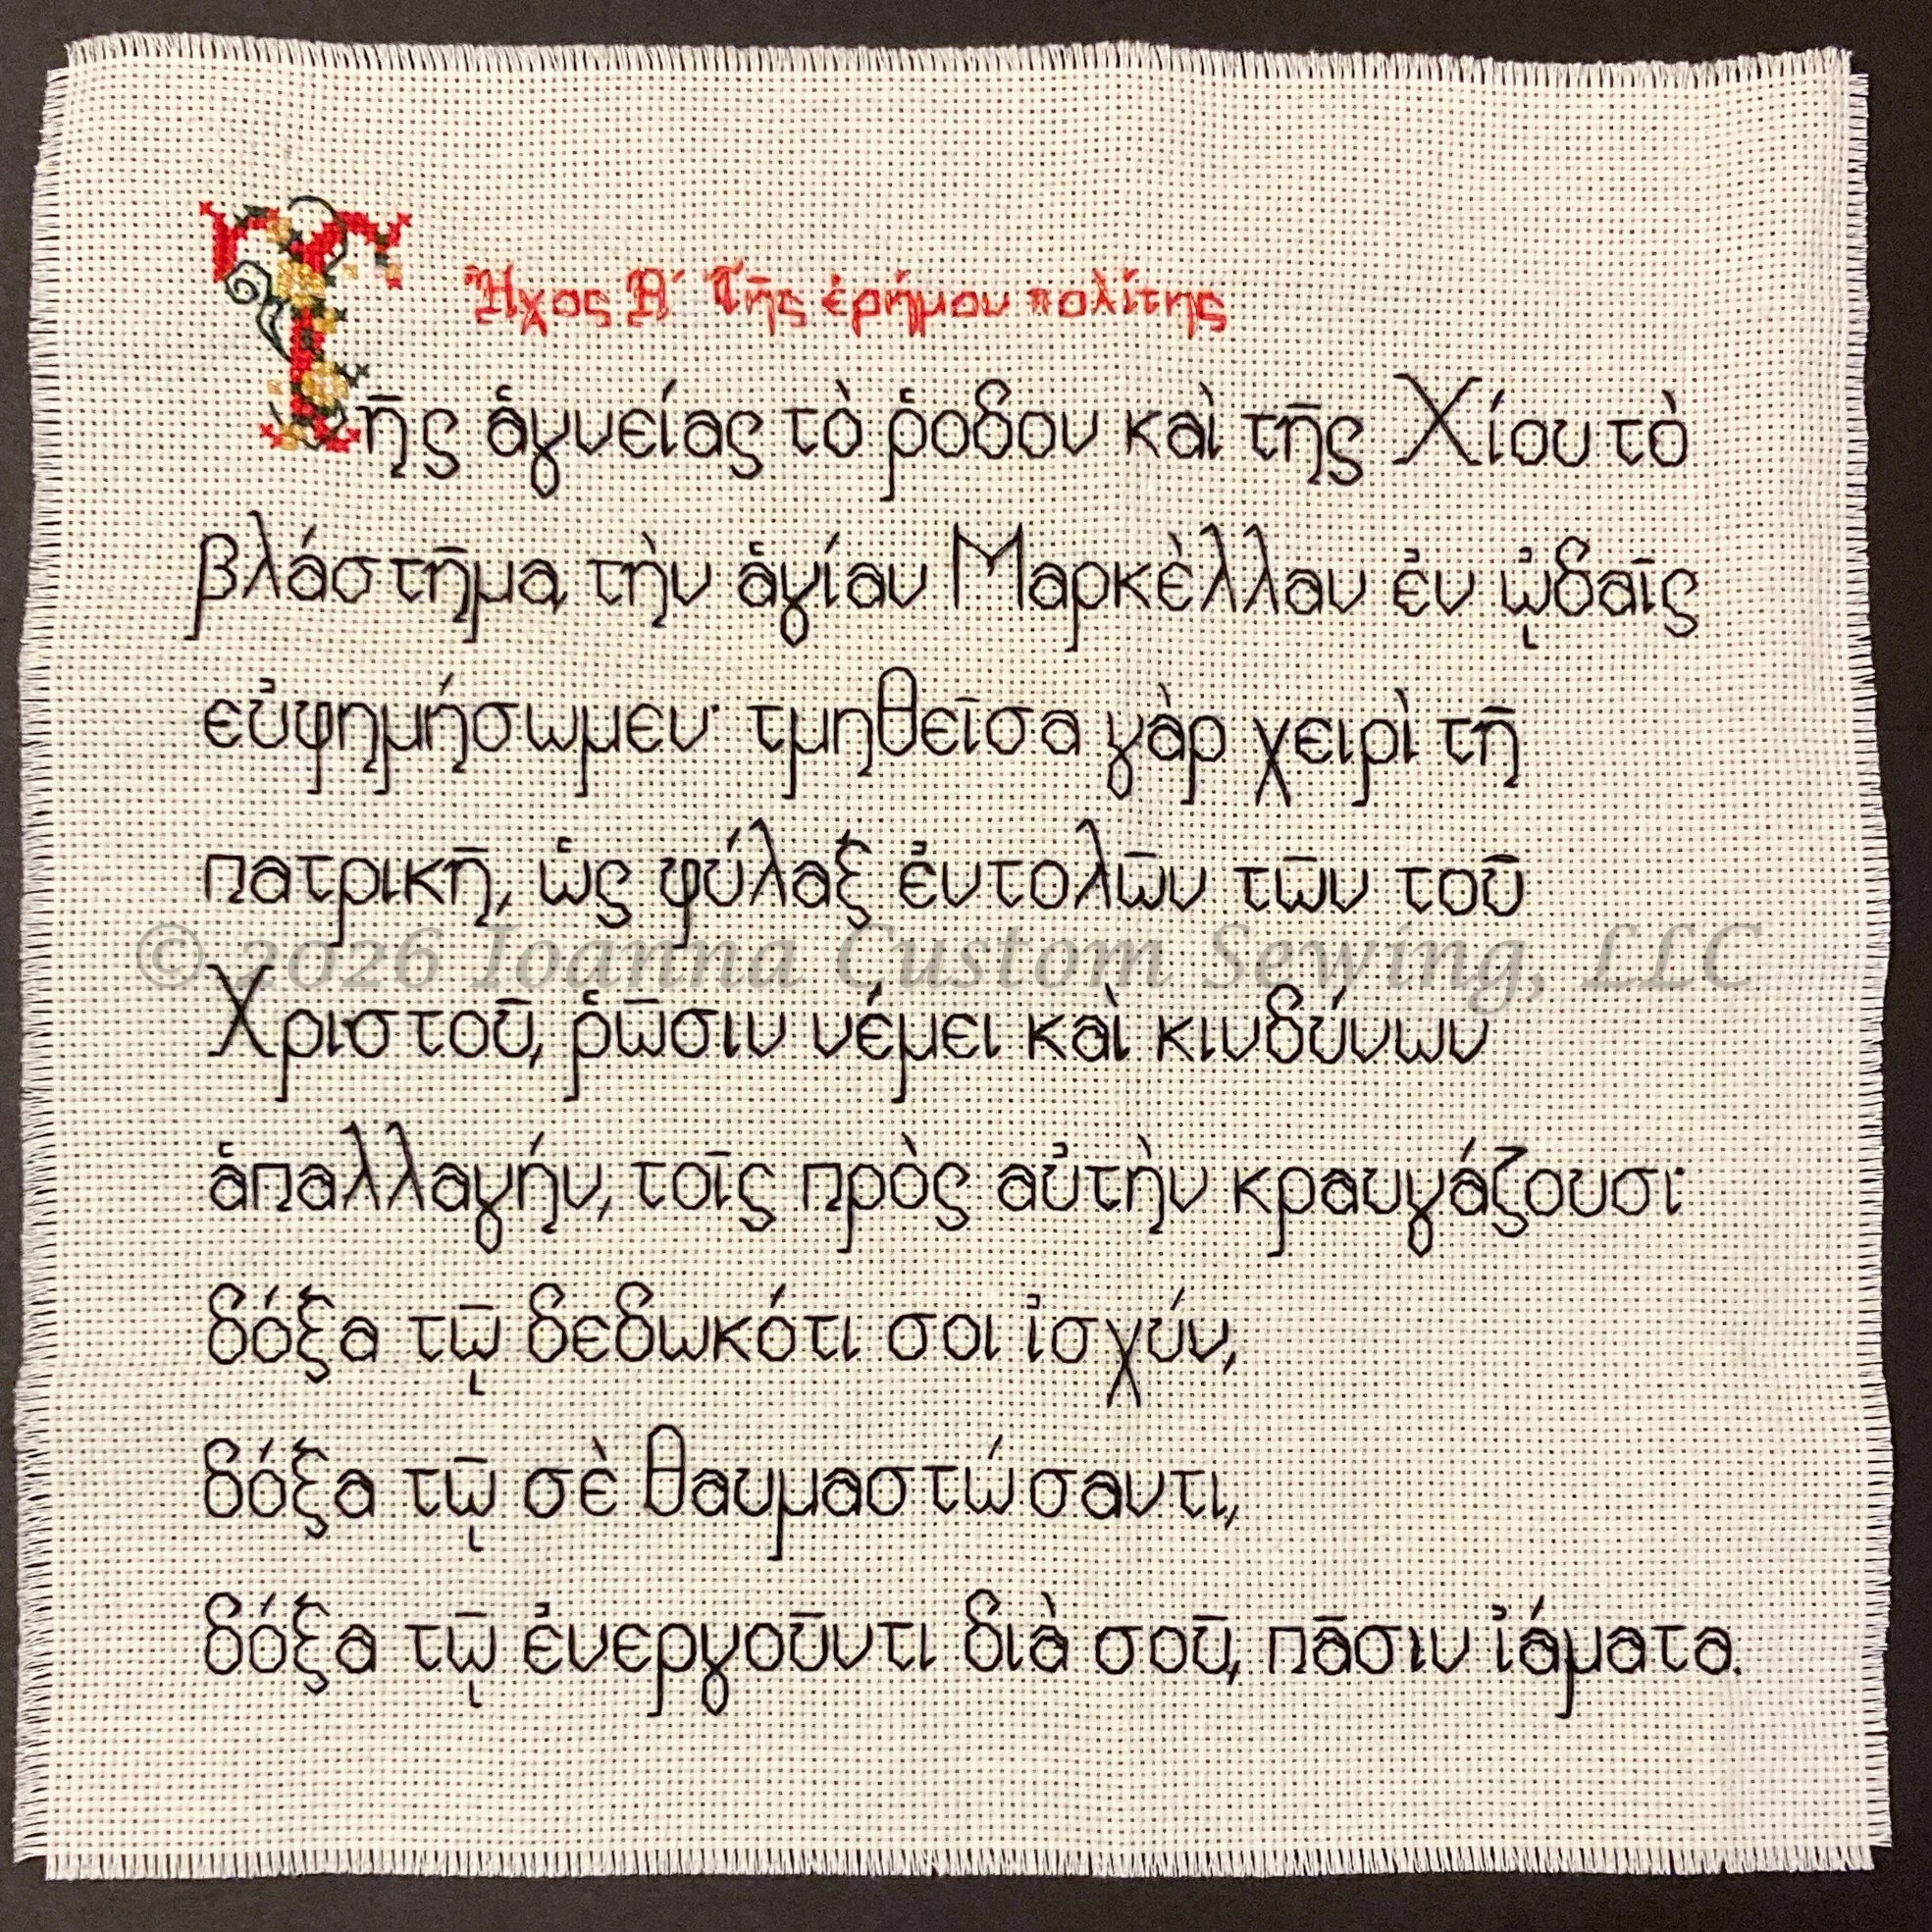 Ἦχος Α´ Τῆς ἐρήμου πολίτης
Τῆς ἁγνείας τὸ ῥόδον καὶ τῆς Χίου τὸ
βλάστημα, τὴν ἁγίαν Μαρκέλλαν ἐν ᾠδαῖς
εὐφημήσωμεν· τμηθεῖσα γὰρ χειρὶ τῆ
πατρικῆ, ὡς φύλαξ ἐντολῶν τῶν τοῦ
© 2026 Ioanna Custom Sewing, LLC
Χριστοῦ, ῥῶσιν νέμει καὶ κινδύνων
ἁπαλλαγήν, τοῖς πρὸς αὐτὴν κραυγάζουσι·
δόξα τῷ δεδωκότι σοι ἰσχύν,
δόξα τῷ σὲ θαυμαστώσαντι,
δόξα τῷ ἐνεργοῦντι διὰ σοῦ, πᾶσιν ἰάματα.